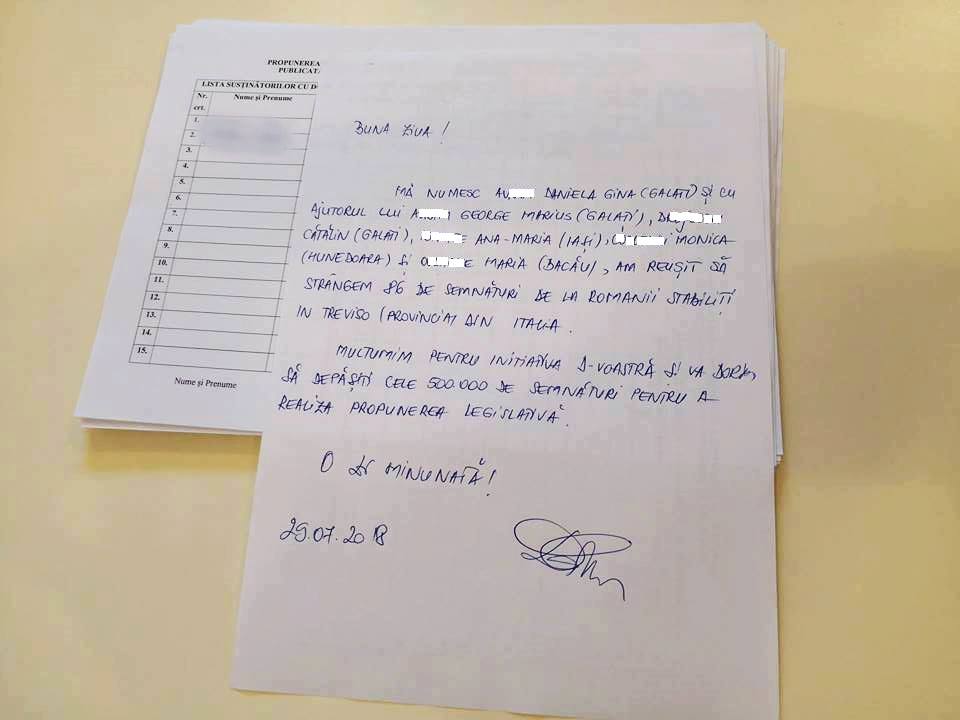 PROPUNEREA
PUBLICATĂ
LISTA SUSȚINĂTORILOR CU D
Nr. crt.
Nume și Prenume
1.
2.
3.
4.
5.
6.
7.
8.
9.
10.
11.
12.
13.
14.
15.
Nume și Prenume
BUNA ZIUA!
MĂ NUMESC DANIELA GINA (GALAȚI) ȘI CU
AJUTORUL LUI GEORGE MARIUS (GALAȚI),
CĂTĂLIN (GALAȚI), ANA-MARIA (IAȘI), MONICA
(HUNEDOARA) ȘI MARIA (BACĂU), AM REUȘIT SĂ
STRÂNGEM 86 DE SEMNĂTURI DE LA ROMANII STABILITI
IN TREVISO (PROVINCIA) DIN ITALIA.
MULTUMIM PENTRU INITIATIVA D-VOASTRĂ SI VA DORIM
SĂ DEPĂȘITI CELE 500.000 DE SEMNĂTURI PENTRU A
REALIZA PROPUNEREA LEGISLATIVĂ.
O ZI MINUNATĂ!
29.07.2018